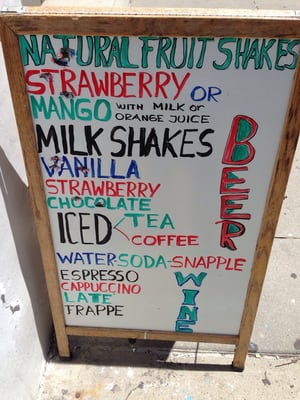 NATURAL FRUIT SHAKES
STRAWBERRY OR
MANGO WITH MILK or
ORANGE JUICE
MILK SHAKES
VANILLA
STRAWBERRY
CHOCOLATE
ICED TEA
COFFEE
WATER-SODA-SNAPPLE
ESPRESSO
CAPPUCCINO
LATE
FRAPPE
BEER
WINE